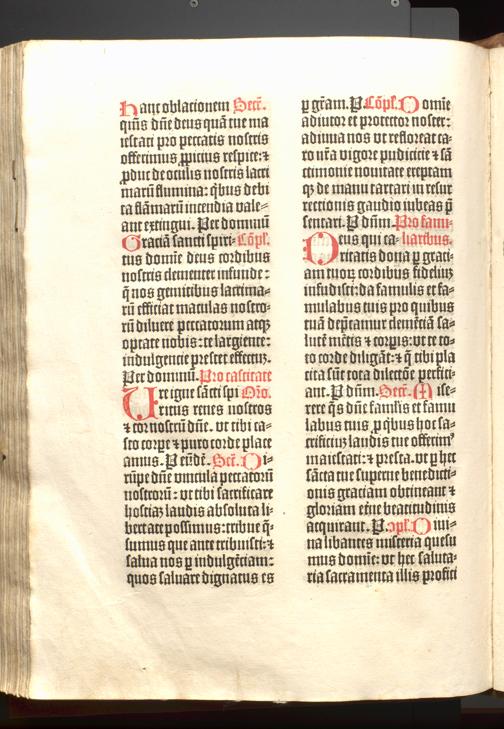 Hanc oblationem Secr̄.
qm̄s dn̄e deus quā tue ma
iestati pro peccatis nostris
offerimus ꝓpicius respice: ⁊
ꝓduc de oculis nostris lacri
marū flumina: qͥbus debi
ta flāmarū incendia vale⸗
ant extingui. Per dominū
Gratiā sancti spiri⸗ Cōpl̄.
tus domīe deus cordibus
nostris clementer infunde:
q̄ nos gemitibus lacrima⸗
rū efficiat maculas nostro⸗
rū diluere peccatorum atqꝫ
optate nobis: te largiente:
indulgentie prestet effectuꝫ.
Per dominū. Pro castitate
Ure igne sācti spi Orō.
ritus renes nostros
⁊ cor nostrū dn̄e. vt tibi ca⸗
sto corꝑe ⁊ puro corde place
amus. P eūdē. Secr̄. Di⸗
rūpe dn̄e vincula peccatorū
nostrorū: vt tibi sacrificare
hostiaꝫ laudis absoluta li⸗
bertate possimus: tribue q̄⸗
sumus que ante tribuisti: ⁊
salua nos ꝑ indulgētiam:
quos saluare dignatus es
ꝑ gr̄am. P. Cōpl̄. Domīe
adiutor et protector noster:
adiuua nos vt refloreat ca⸗
ro nr̄a vigore pudicicie ⁊ sā
ctimonie nouitate ereptam
qꝫ de manu tartari in resur
rectionis gaudio iubeas p̄
sentari. P dn̄m. Pro fami⸗
Deus qui ca⸗ liaribus.
ritatis dona ꝑ graci⸗
am tuoꝝ cordibus fideliuꝫ
infudisti: da famulis et fa⸗
mulabus tuis pro quibus
tuā dep̄camur clemētiā sa⸗
lutē mētis ⁊ corꝑis: vt te to⸗
to corde diligāt: ⁊ q̄ tibi pla
cita sūt tota dilectōe perfici⸗
ant. P dn̄m. Secr̄. Mise⸗
rere q̄s dn̄e famlis et famu
labus tuis ꝓ quibus hoc sa⸗
crificiuꝫ laudis tue offerimꝰ
maiestati: ⁊ presta. vt ꝑ hec
sācta tue superne benedicti⸗
onis graciam obtineant ⁊
gloriam et̄ne beatitudinis
acquirant. P. ɔpl̄. Diui⸗
na libantes misteria quesu
mus domīe: vt hec saluta⸗
ria sacramenta illis profici